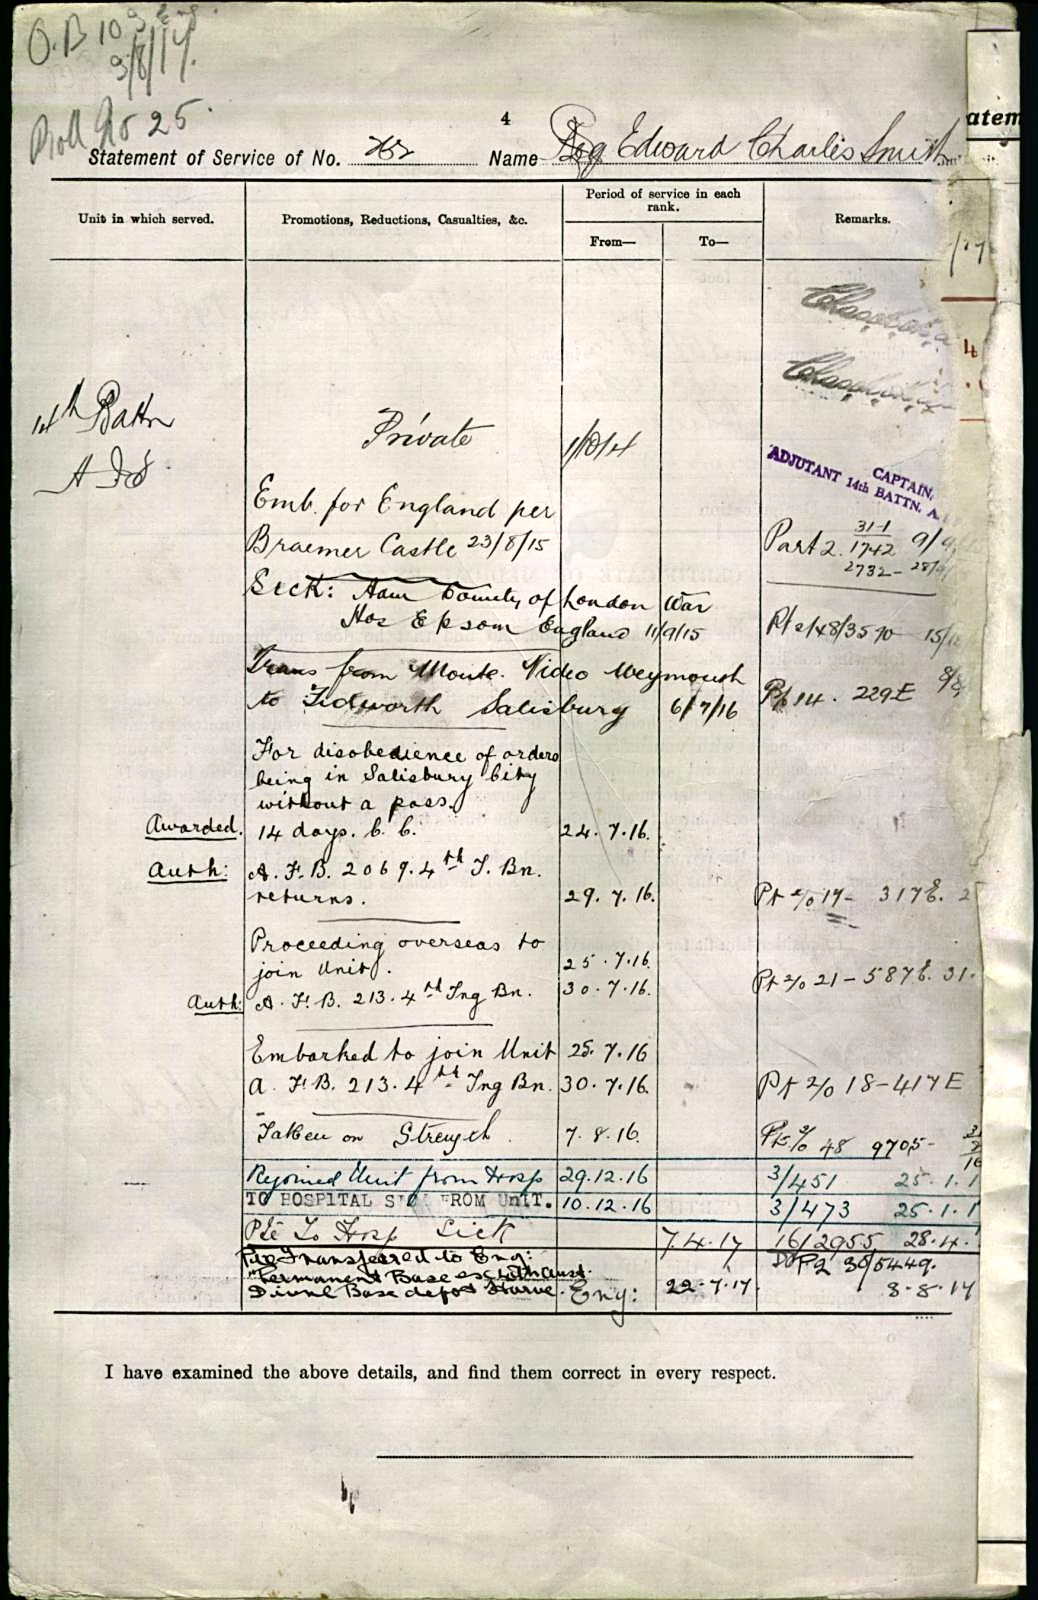 O.B 10
3/8/17.
Roll No 25.
4
Statement of Service of No. Name Edward Charles Smith
atem
Unit in which served.
Promotions, Reductions, Casualties, &c.
Period of service in each rank.
From—
To—
Remarks.
14th Battn
Private 1/10/14
CAPTAIN,
ADJUTANT 14th BATTN. A.
Emb. for England per
Braemer Castle 23/8/15
Part 2. 311 1742 9/9
2732 - 28/9
Sick: Adm County of London War
Hos Epsom England 11/9/15
15/
Trans from Monte. Video Weymouth
to Tidworth Salisbury 6/7/16
Pt 14. 229E 8/8
For disobedience of orders
being in Salisbury City
without a pass.
Awarded. 14 days. C. C. 24.7.16.
Auth: A. F. B. 2069. 4th T. Bn.
returns. 29.7.16.
Pt 2/0 17- 317E. 2
Proceeding overseas to
join Unit. 25.7.16.
Auth: A. F. B. 213. 4th Tng Bn. 30.7.16.
Pt 2/0 21 - 587E. 31.
Embarked to join Unit 25.7.16
A. F. B. 213. 4th Tng Bn. 30.7.16.
Pt 2/0 18-417E
Taken on Strength. 7.8.16.
Pt 2/0 48 9705-
Rejoined Unit from Hosp 29.12.16 3/451 25.1.1
TO HOSPITAL SICK FROM UniT. 10.12.16 3/473 25.1.1
Pte To Hosp Sick 7.4.17 16/2955 28.4.
Pte Transferred to Eng:
Permanent Base with Aust.
Divnl Base depot Havre. Eng: 22.7.17.
DO P2 30/5449.
8.8.17
I have examined the above details, and find them correct in every respect.